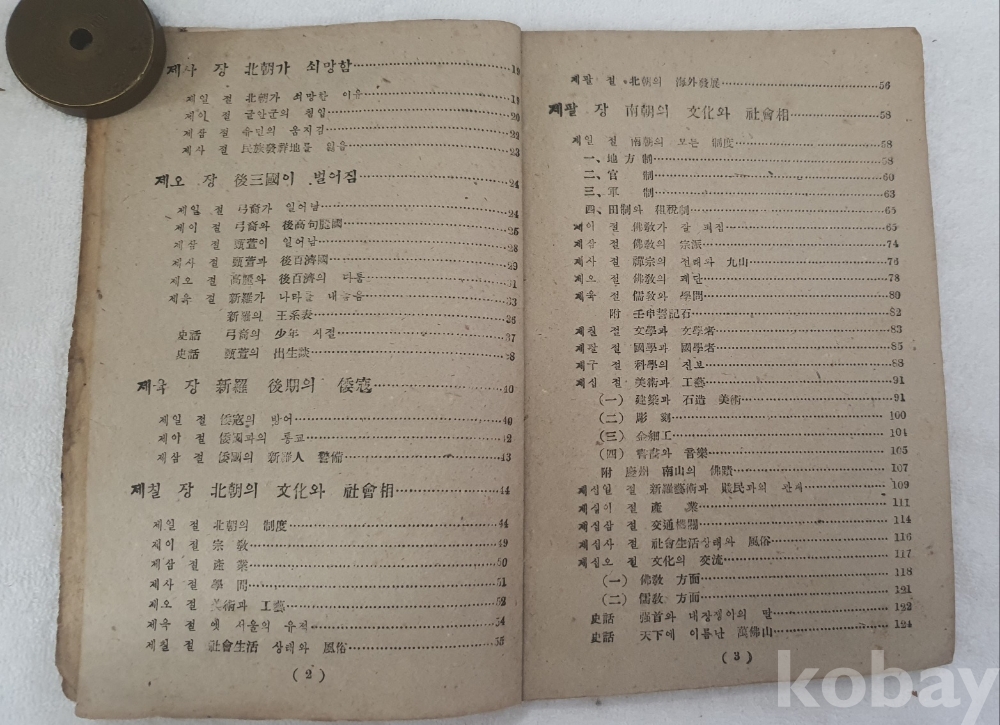 제사 장 北朝가 쇠망함 19
제일 절 北朝가 쇠망한 이유 19
제이 절 글안군의 침입 20
제삼 절 유민의 움직임 22
제사 절 民族發祥地를 잃음 23
제오 장 後三國이 벌어짐 24
제일 절 弓裔가 일어남 24
제이 절 弓裔와 後高句麗國 25
제삼 절 甄萱이 일어남 28
제사 절 甄萱과 後百濟國 29
제오 절 高麗와 後百濟의 다툼 31
제육 절 新羅가 나라를 내놓음 33
新羅의 王系表 36
史話 弓裔의 少年 시절 37
史話 甄萱의 出生談 38
제육 장 新羅 後期의 倭寇 40
제일 절 倭寇의 방어 40
제이 절 倭國과의 통교 42
제삼 절 倭國의 新羅人 警備 43
제칠 장 北朝의 文化와 社會相 44
제일 절 北朝의 制度 44
제이 절 宗敎 49
제삼 절 產業 50
제사 절 學問 51
제오 절 美術과 工藝 52
제육 절 옛 서울의 유적 54
제칠 절 社會生活 상태와 風俗 55
( 2 )
제팔 절 北朝의 海外發展 56
제팔 장 南朝의 文化와 社會相 58
제일 절 南朝의 모든 制度 58
一、地方制 58
二、官 制 60
三、軍 制 63
四、田制와 租稅制 65
제이 절 佛敎가 잘 퍼짐 65
제삼 절 佛敎의 宗派 74
제사 절 禪宗의 전래와 九山 76
제오 절 佛敎의 계단 78
제육 절 儒敎와 學問 80
附 壬申誓記石 82
제칠 절 文學과 文學者 83
제팔 절 國學과 國學者 85
제구 절 科學의 진보 88
제십 절 美術과 工藝 91
(一) 建築과 石造 美術 91
(二) 彫 刻 100
(三) 金細工 104
(四) 書畫와 音樂 105
附 慶州 南山의 佛蹟 107
제십일 절 新羅藝術과 賤民과의 관계 109
제십이 절 產 業 111
제십삼 절 交通機關 114
제십사 절 社會生活상태와 風俗 116
제십오 절 文化의 交流 117
(一) 佛敎 方面 118
(二) 儒敎 方面 121
史話 强首와 대장쟁이의 딸 122
史話 天下에 이름난 萬佛山 124
( 3 )
kobay